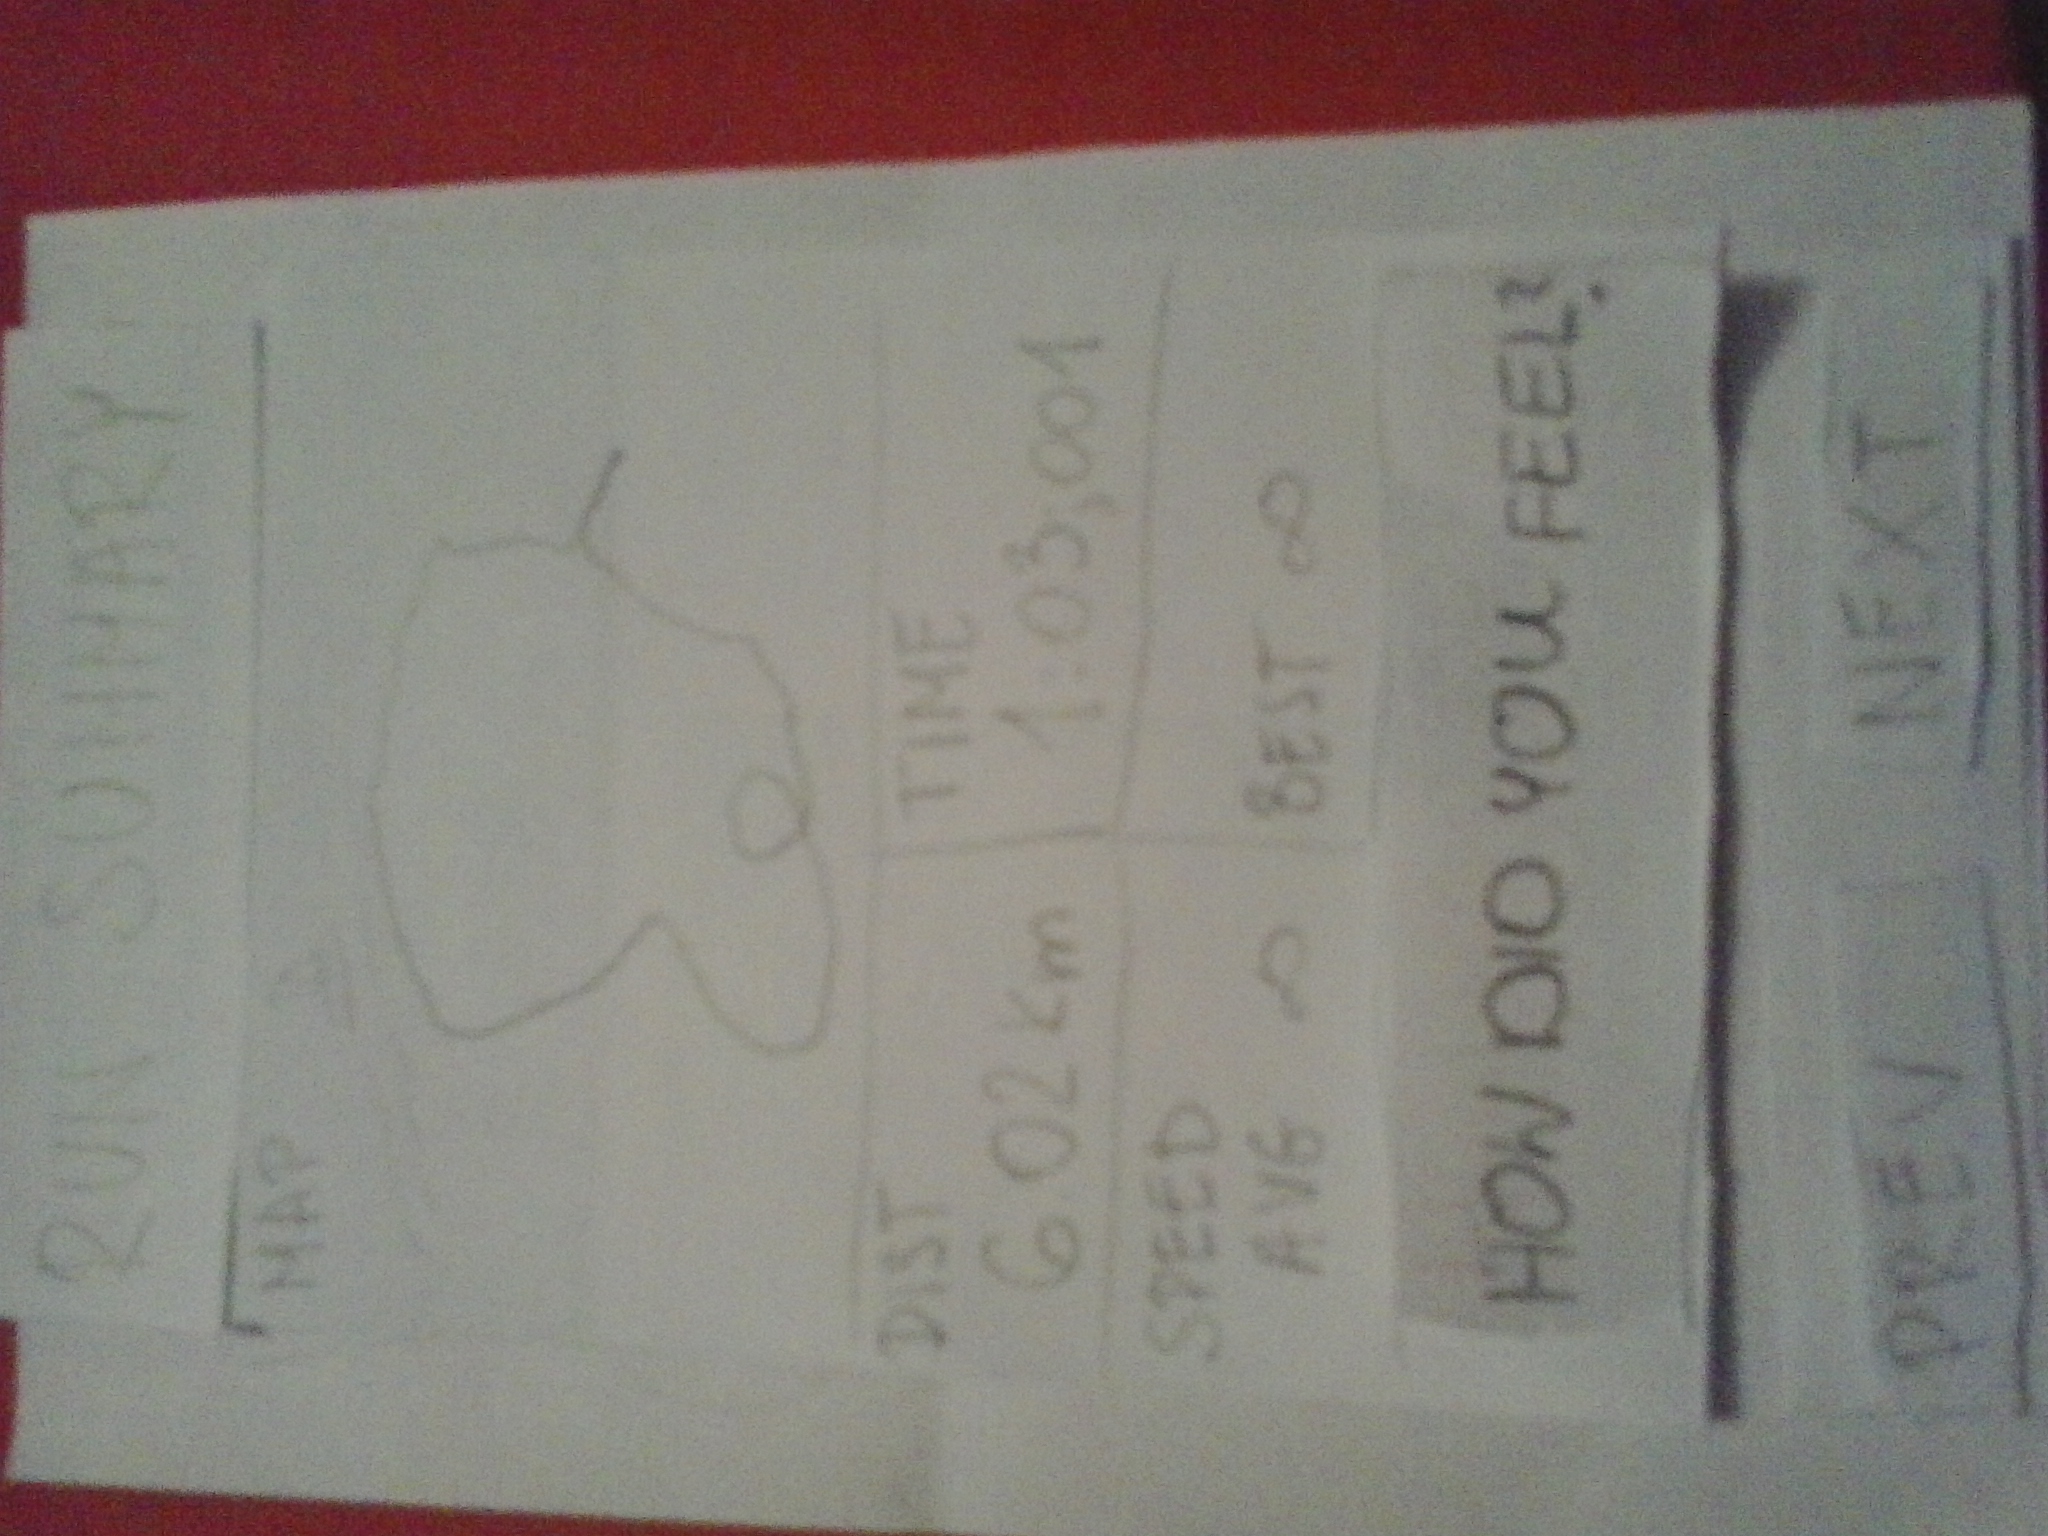 RUN SUMMARY
MAP
DIST
6.02 Km
TIME
1:03;001
SPEED
AVG ∞
BEST ∞
HOW DID YOU FEEL?
PREV
NEXT